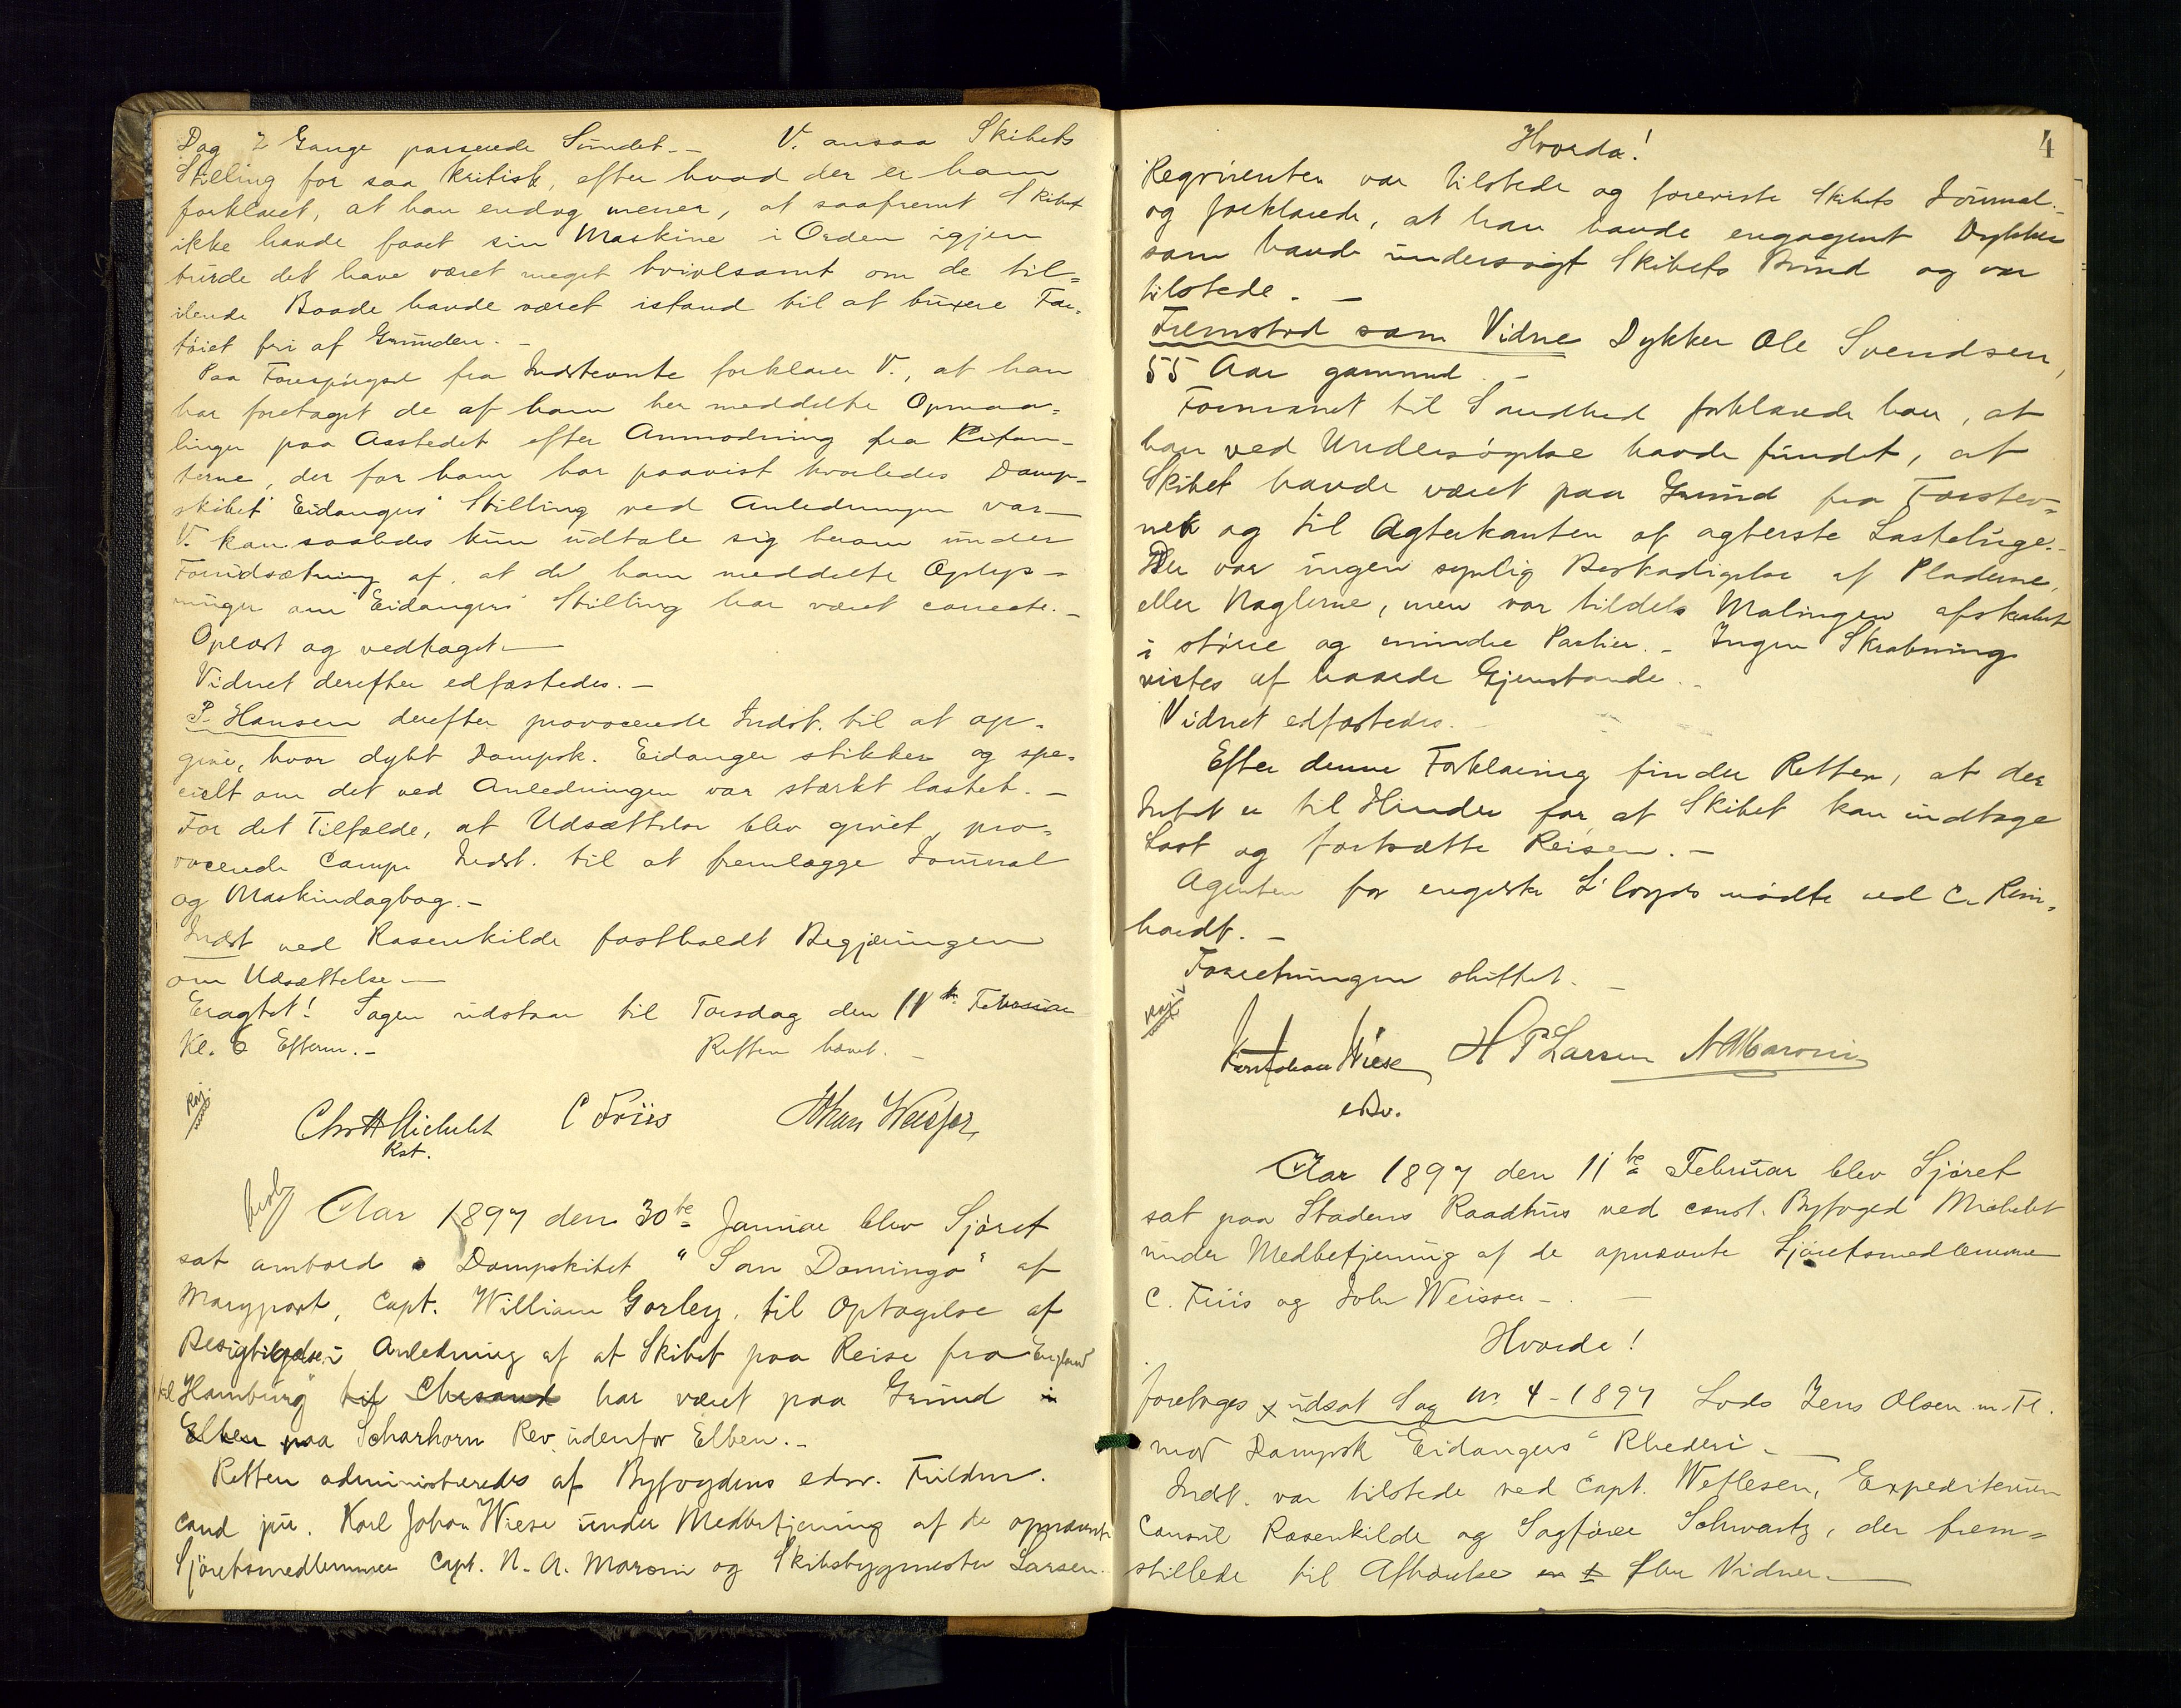 Dag 2 Gange passerede Sundet. — V. ansaa Skibets
Stilling for saa kritisk, efter hvad der er ham
forklaret, at han endog mener, at saafremt Skibet
ikke havde faaet sin Maskine i Orden igjen
turde det have været meget tvivlsomt om de til=
ilende Baade havde været istand til at buxere Far=
töiet fri af Grunden. —
Paa Forespörgsel fra Indstevnte forklarer V., at han
har foretaget de af ham her meddelte Opmaa=
linger paa Aastedet efter Anmodning fra Citan=
terne, der for ham har paavist hvorledes Damp=
skibet "Eidangers" Stilling ved Anledningen var —
V. kan saaledes kun udtale sig herom under
Forudsætning af, at de ham meddelte Oplys=
ninger om "Eidangers" Stilling har været correcte. —
Oplæst og vedtaget. —
Vidnet derefter edfæstedes. —
P. Hansen derefter provocerede Indst. til at op=
give, hvor dybt Dampsk. Eidanger stikker og spe=
cielt om det ved Anledningen var stærkt lastet. —
For det Tilfælde, at Udsættelse blev givet, pro=
vocerede Comp. Indst. til at fremlægge Journal
og Maskindagbog. —
Indst ved Rosenkilde fastholdt Begjæringen
om Udsættelse —
Eragtet! Sagen udstaar til Torsdag den 11te Februar
Kl. 6 Efterm. — Retten hævet. —
Chr A Michelet C Friis Johan Weisser
Kst.
Aar 1897 den 30te Januar blev Sjöret
sat ombord i Dampskibet "San Domingo" af
Maryport, Capt. William Gorley, til Optagelse af
Besigtigelse i Anledning af at Skibet paa Reise fra England
til Hamburg til Chrsand har været paa Grund i
Elben paa Scharhorn Rev udenfor Elben. —
Retten administreredes af Byfogdens edsv. Fuldm.
cand jur. Karl Johan Wiese under Medbetjening af de opnævnte
Sjöretsmedlemmer Capt. N. A. Maroni og Skibsbygmester Larsen.
4
Hvorda!
Reqvirenten var tilstede og foreviste Skibets Journal. —
og forklarede, at han havde engageret Dykker
som havde undersögt Skibets Bund og var
tilstede. —
Fremstod som Vidne Dykker Ole Svendsen,
55 Aar gammel. —
Formanet til Sandhed forklarede han, at
han ved Undersögelse havde fundet, at
Skibet havde været paa Grund fra Forstev=
nen og til Agterkanten af agterste Lasteluge. —
Der var ingen synlig Beskadigelse af Pladerne
eller Naglerne, men var tildels Malingen afskrabet
i större og mindre Partier. — Ingen Skrabning
vistes af haarde Gjenstande. —
Vidnet edfæstedes. —
Efter denne Forklaring finder Retten, at der
Intet er til Hinder for at Skibet kan indtage
Last og fortsætte Reisen. —
Agenten for engelske Lloyds mödte ved C. Rein=
hardt. —
Forretningen sluttet. —
Karl Johan Wiese H P Larsen N A Maroni
edsv.
Aar 1897 den 11te Februar blev Sjöret
sat paa Stadens Raadhus ved const. Byfoged Michelet
under Medbetjening af de opnævnte Sjöretsmedlemmer
C. Friis og John Weisser —
Hvorda!
foretoges udsat Sag Nr. 4 - 1897 Lods Jens Olsen m. Fl.
mod Dampsk "Eidangers" Rhederi —
Indst. var tilstede ved Capt. Wetlesen, Expediteuren
Consul Rosenkilde og Sagförer Schwartz, der frem=
stillede til Afhörelse en t flere Vidner. —